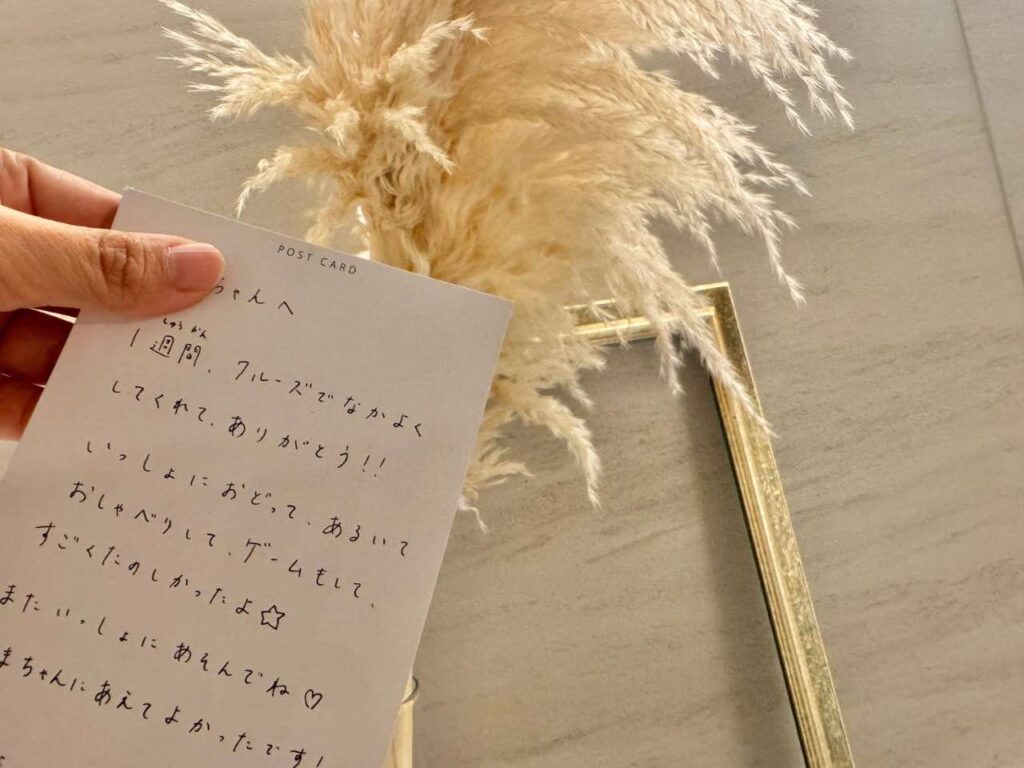 POST CARD
ちゃんへ
しゅう かん
1週間、クルーズでなかよく
してくれて、ありがとう!!
いっしょにおどって、あるいて
おしゃべりして、ゲームもして、
すごくたのしかったよ☆
またいっしょにあそんでね♡
まちゃんにあえてよかったです!